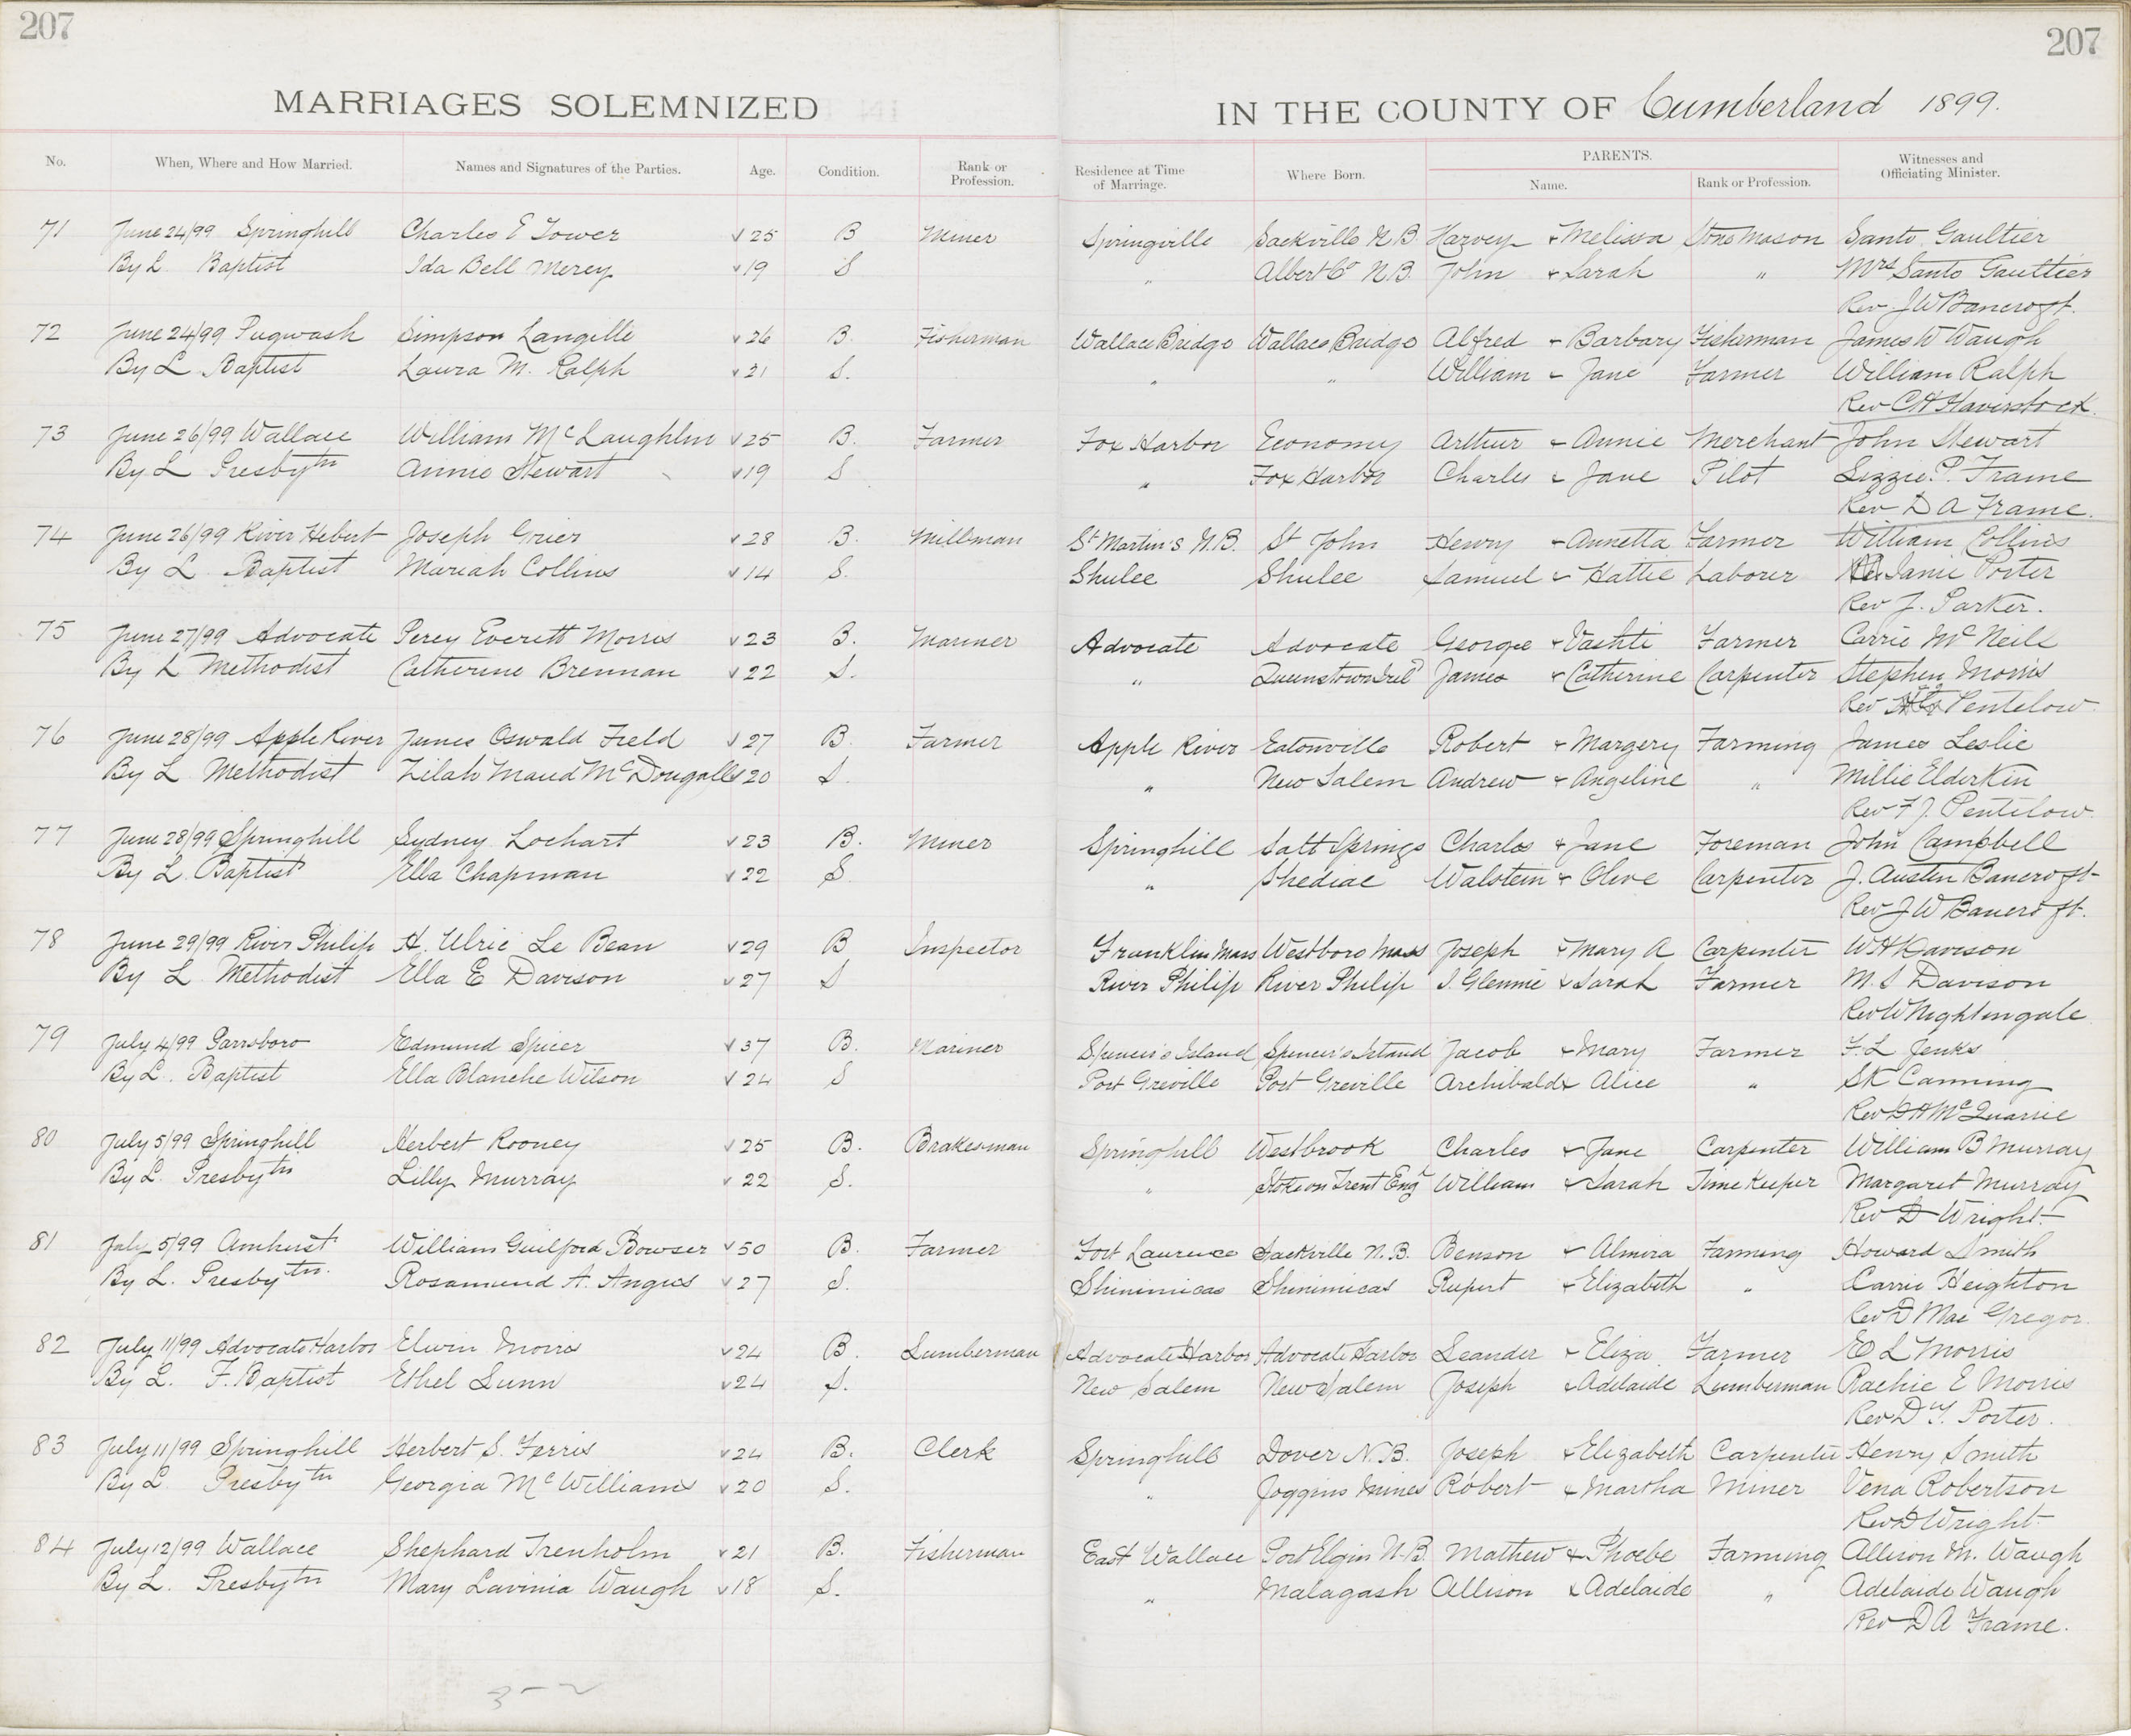 207
207
MARRIAGES SOLEMNIZED IN THE COUNTY OF Cumberland 1899.
No. When, Where and How Married. Names and Signatures of the Parties. Age. Condition. Rank or Profession. Residence at Time of Marriage. Where Born. PARENTS. Name. Rank or Profession. Witnesses and Officiating Minister.
71 June 24/99 Springhill Charles E Tower √25 B Miner Springville Sackville N.B. Harvey + Melissa Stone Mason Santo Gaultier
By L. Baptist Ida Bell Mercy √19 S " Albert Co N.B. John + Sarah " Mrs Santo Gaultier
Rev J W Bancroft.
72 June 24/99 Pugwash Simpson Langille √26 B. Fisherman Wallace Bridge Wallace Bridge Alfred + Barbary Fisherman James W Waugh
By L Baptist Laura M. Ralph √21 S. " " William + Jane Farmer William Ralph
Rev C H Haverstock.
73 June 26/99 Wallace William McLaughlin √25 B. Farmer Fox Harbor Economy Arthur + Annie Merchant John Stewart
By L Presbytn Annie Stewart √19 S " Fox Harbor Charles + Jane Pilot Lizzie P. Frame
Rev D A Frame.
74 June 26/99 River Hebert Joseph Grier √28 B. Millman St Martin's N.B. St John Henry + Annetta Farmer William Collins
By L Baptist Mariah Collins √14 S. Shulee Shulee Samuel + Hattie Laborer Janie Porter
Rev J. Parker.
75 June 27/99 Advocate Percy Everett Morris √23 B. Mariner Advocate Advocate George + Vashti Farmer Carrie McNeil
By L Methodist Catherine Brennan √22 S. " Queenstown Ireld James + Catherine Carpenter Stephen Morris
Rev Pentelow.
76 June 28/99 Apple River James Oswald Field √27 B. Farmer Apple River Eatonville Robert + Margery Farming James Leslie
By L Methodist Zilah Maud McDougall √20 S. " New Salem Andrew + Angeline " Millie Elderkin
Rev F J. Pentelow.
77 June 28/99 Springhill Sydney Lochart √23 B. Miner Springhill Salt Springs Charles + Jane Foreman John Campbell
By L. Baptist Ella Chapman √22 S " Shediac Walstein + Olive Carpenter J. Austen Bancroft
Rev J W Bancroft.
78 June 29/99 River Philip H. Ulric Le Bean √29 B Inspector Franklin Mass Westboro Mass Joseph + Mary A Carpenter W H Davison
By L Methodist Ella E Davison √27 S River Philip River Philip J. Glennie + Sarah Farmer M. S Davison
Rev W Nightengale
79 July 4/99 Parrsboro Edmund Spicer √37 B. Mariner Spencer's Island Spencer's Island Jacob + Mary Farmer F. L Jenks
By L. Baptist Ella Blanche Wilson √24 S Port Greville Port Greville Archibald + Alice " S K Canning
Rev D H McQuarrie
80 July 5/99 Springhill Herbert Rooney √25 B. Brakesman Springhill Westbrook Charles + Jane Carpenter William B Murray
By L. Presbytn Lilly Murray √22 S. " Stoke on Trent Eng William + Sarah Time Keeper Margaret Murray
Rev D Wright.
81 July 5/99 Amherst William Guilford Bowser √50 B. Farmer Fort Laurence Sackville N.B. Benson + Almira Farming Howard Smith
By L. Presbytn. Rosamund A. Angus √27 S. Shinimicas Shinimicas Rupert + Elizabeth " Carrie Heighton
Rev D Mac Gregor.
82 July 11/99 Advocate Harbor Elwin Morris √24 B. Lumberman Advocate Harbor Advocate Harbor Leander + Eliza Farmer E L Morris
By L. F. Baptist Ethel Lunn √24 S. New Salem New Salem Joseph + Adelaide Lumberman Rachie E Morris
Rev D Y. Porter.
83 July 11/99 Springhill Herbert S. Ferris √24 B. Clerk Springhill Dover N.B. Joseph + Elizabeth Carpenter Henry Smith
By L Presbytn Georgia McWilliams √20 S. " Joggins Mines Robert + Martha Miner Vena Robertson
Rev D Wright
84 July 12/99 Wallace Shephard Trenholm √21 B. Fisherman East Wallace Port Elgin N.B. Mathew + Phoebe Farming Allison M. Waugh
By L. Presbytn Mary Lavinia Waugh √18 S. " Malagash Allison + Adelaide " Adelaide Waugh
Rev D A Frame.